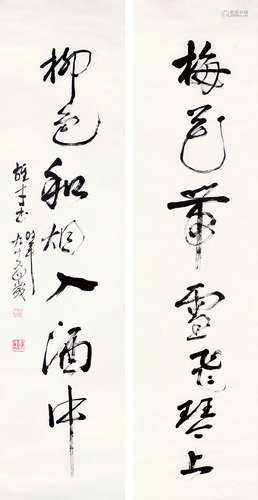 梅花带雪飞琴上
柳色和烟入酒中
雄才书